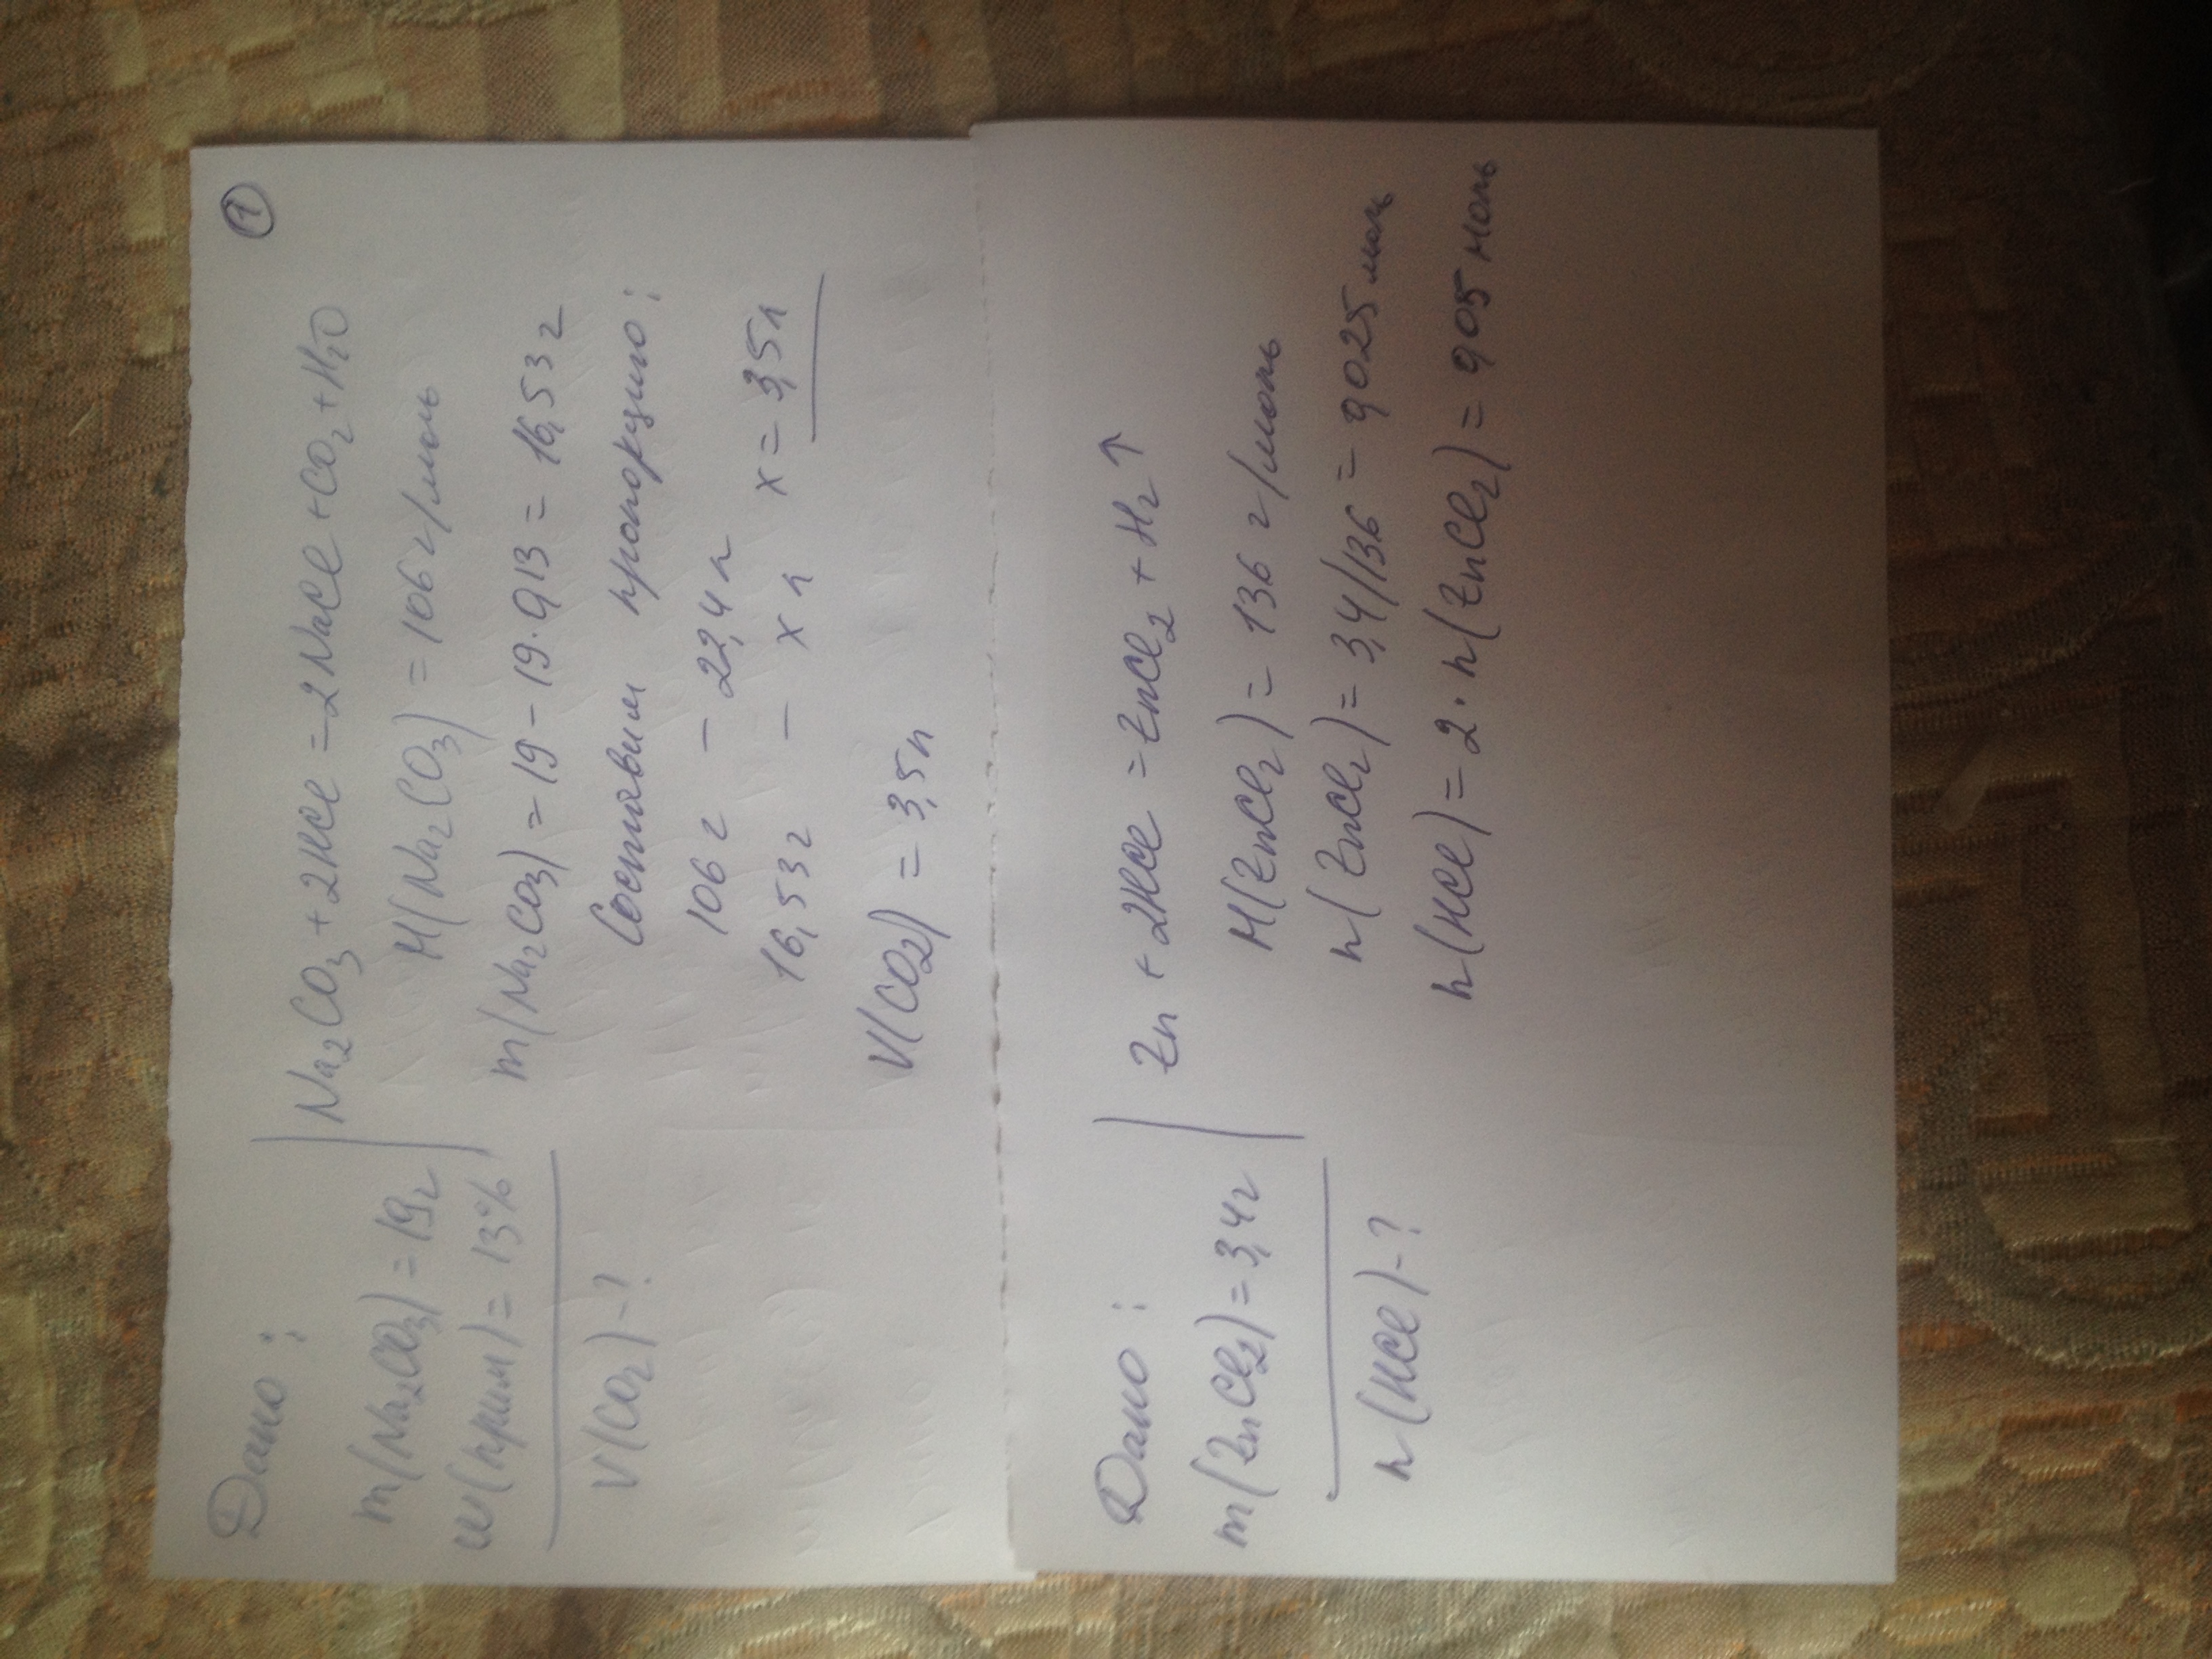 ①
Дано:
m(Na₂CO₃) = 19г
w(прим) = 13%
V(CO₂) - ?
Na₂CO₃ + 2HCl = 2NaCl + CO₂ + H₂O
M(Na₂CO₃) = 106 г/моль
m(Na₂CO₃) = 19 - 19·0,13 = 16,53 г
Составим пропорцию:
106 г – 22,4 л
16,53 г – x л x = 3,5 л
V(CO₂) = 3,5 л
Дано:
m(ZnCl₂) = 3,4 г
n(HCl) - ?
Zn + 2HCl = ZnCl₂ + H₂↑
M(ZnCl₂) = 136 г/моль
n(ZnCl₂) = 3,4/136 = 0,025 моль
n(HCl) = 2·n(ZnCl₂) = 0,05 моль